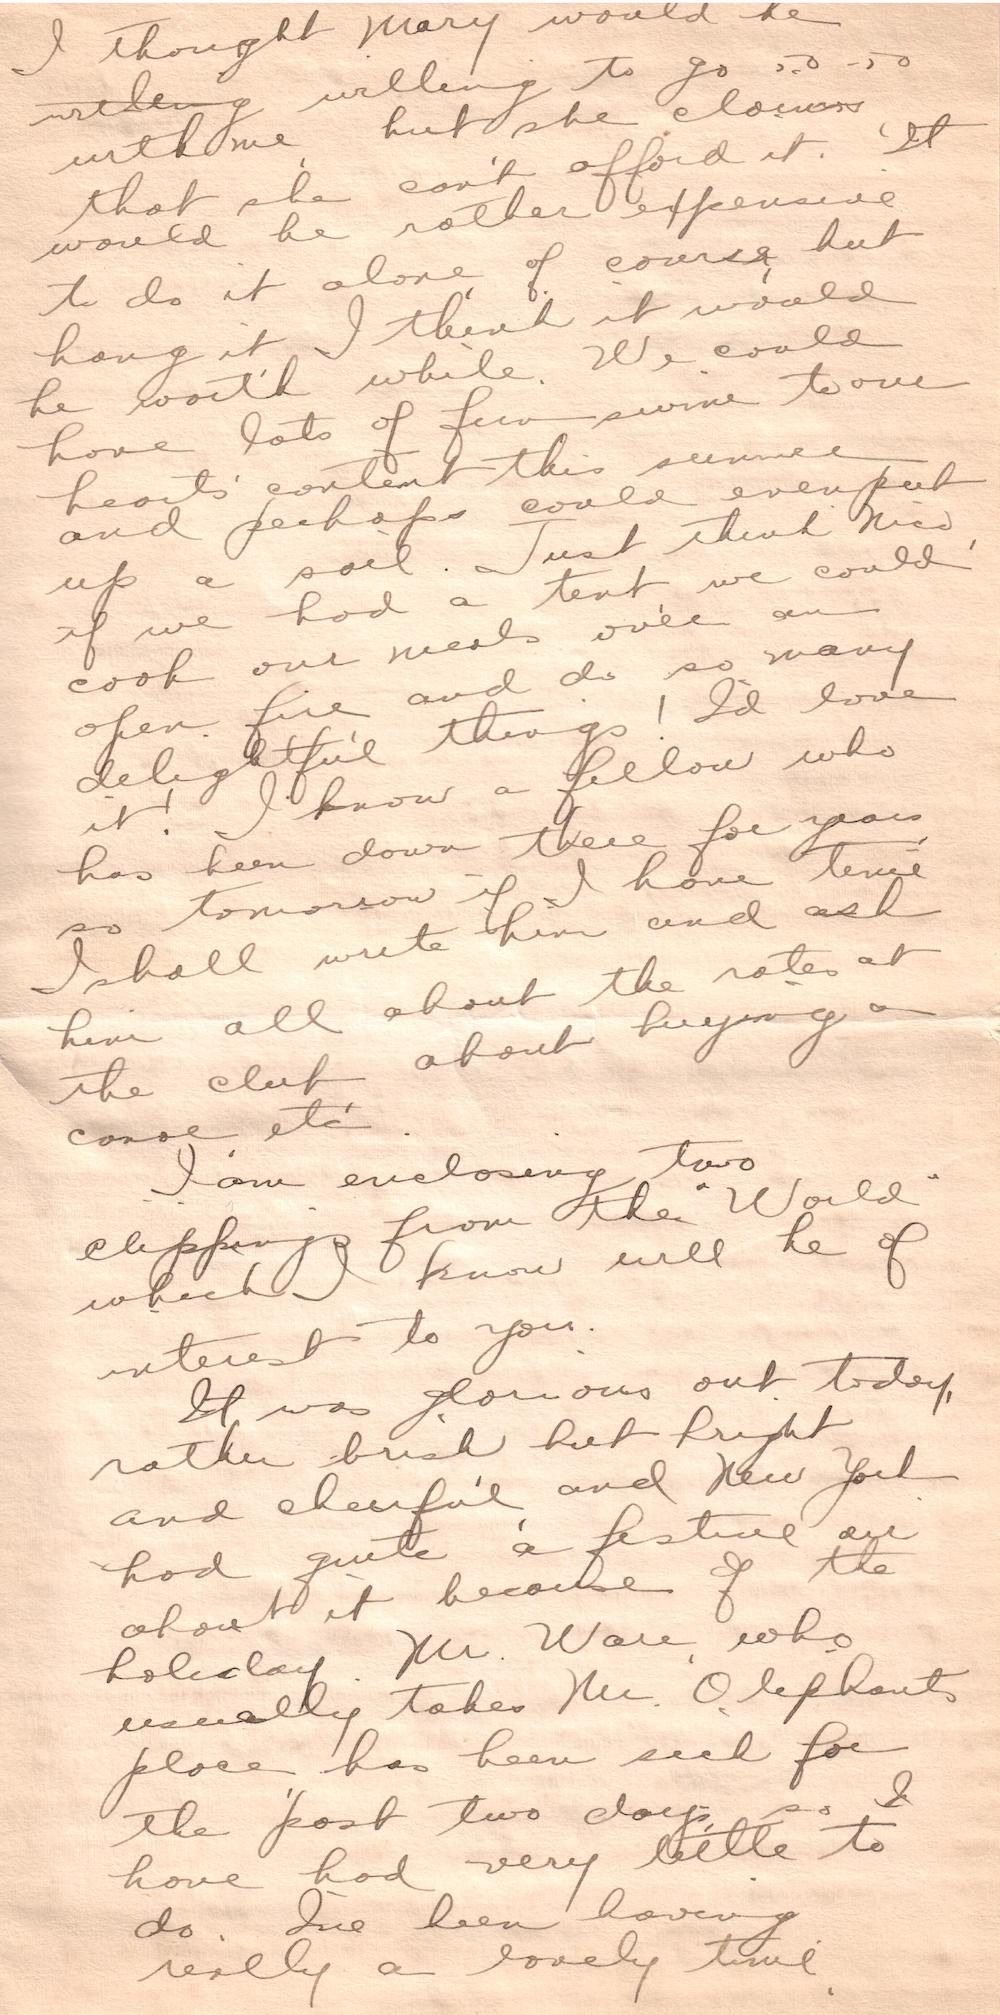 I thought Mary would be
willing willing to go
with me, but she claims
that she can't afford it. It
would be rather expensive
to do it alone of course, but
hang it I think it would
be worth while. We could
have lots of fun swim to our
hearts' content this summer
and perhaps could even put
up a sail. Just think Nico,
if we had a tent we could
cook our meals over an
open fire and do so many
delightful things! I'd love
it! I know a fellow who
has been down there for years,
so tomorrow if I have time
I shall write him and ask
him all about the rates at
the club about buying a
canoe etc.
I am enclosing two
clippings from the "World"
which I know will be of
interest to you.
It was glorious out today,
rather brisk but bright
and cheerful and New York
had quite a festive air
about it because of the
holiday. Mr. Ware, who
usually takes Mr. Olephants
place, has been sick for
the past two days, so I
have had very little to
do. I've been having
really a lovely time.